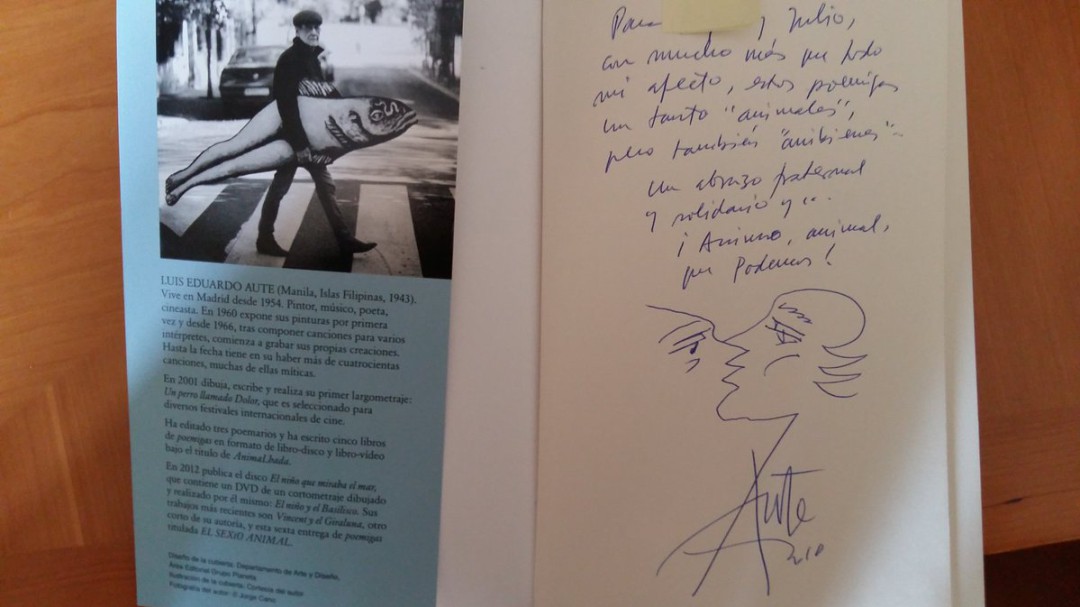 LUIS EDUARDO AUTE (Manila, Islas Filipinas, 1943).
Vive en Madrid desde 1954. Pintor, músico, poeta,
cineasta. En 1960 expone sus pinturas por primera
vez y desde 1966, tras componer canciones para varios
intérpretes, comienza a grabar sus propias creaciones.
Hasta la fecha tiene en su haber más de cuatrocientas
canciones, muchas de ellas míticas.
En 2001 dibuja, escribe y realiza su primer largometraje:
Un perro llamado Dolor, que es seleccionado para
diversos festivales internacionales de cine.
Ha editado tres poemarios y ha escrito cinco libros
de poemigas en formato de libro-disco y libro-vídeo
bajo el título de AnimaLhada.
En 2012 publica el disco El niño que miraba el mar,
que contiene un DVD de un cortometraje dibujado
y realizado por él mismo: El niño y el Basilisco. Sus
trabajos más recientes son Vincent y el Giraluna, otro
corto de su autoría, y esta sexta entrega de poemigas
titulada EL SEXtO ANIMAL.
Diseño de la cubierta: Departamento de Arte y Diseño,
Área Editorial Grupo Planeta
Ilustración de la cubierta: Cortesía del autor
Fotografía del autor: © Jorge Cano
Para y Julio,
con mucho más que todo
mi afecto, estos poemigas
un tanto "animales",
pero también "anibienes"
Un abrazo fraternal
y solidario y...
¡Animo, animal,
que Podemos!
Aute